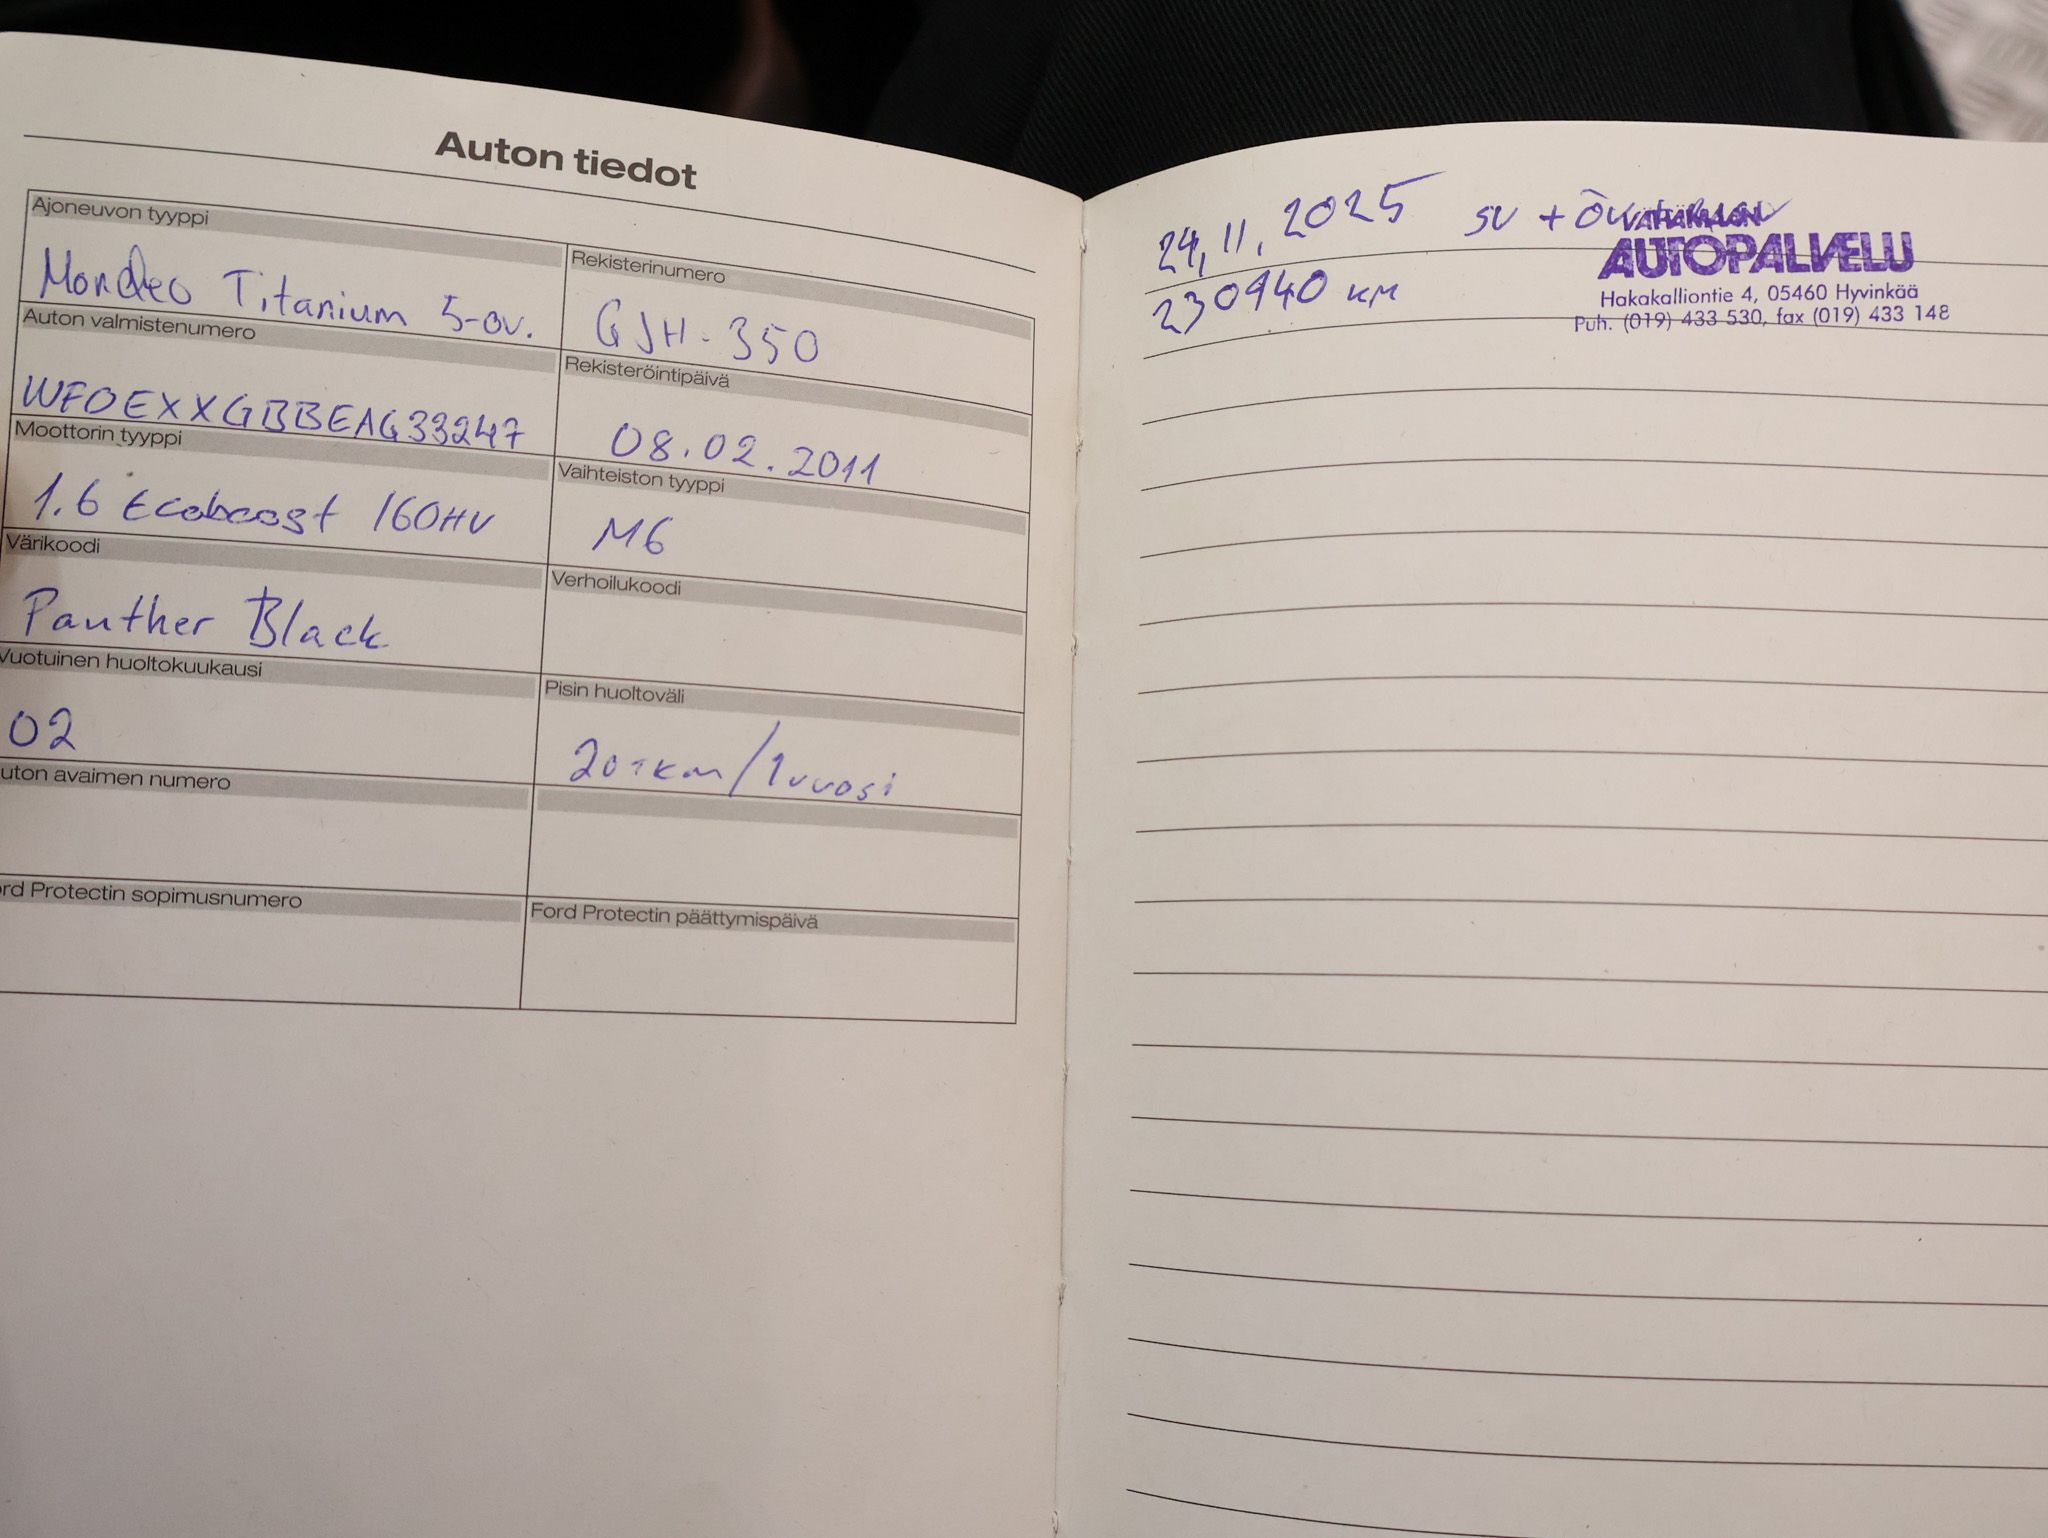 Auton tiedot
Ajoneuvon tyyppi
Mondeo Titanium 5-ov.
Rekisterinumero
GJH-350
Auton valmistenumero
WF0EXXGBBEAG33247
Rekisteröintipäivä
08.02.2011
Moottorin tyyppi
1.6 Ecoboost 160HV
Vaihteiston tyyppi
M6
Värikoodi
Panther Black
Verhoilukoodi
Vuotuinen huoltokuukausi
02
Pisin huoltoväli
20tkm/1vuosi
uton avaimen numero
rd Protectin sopimusnumero
Ford Protectin päättymispäivä
24,11,2025 SV +
230940 KM
AUTOPALVELU
Hakakalliontie 4, 05460 Hyvinkää
Puh. (019) 433 530, fax (019) 433 148